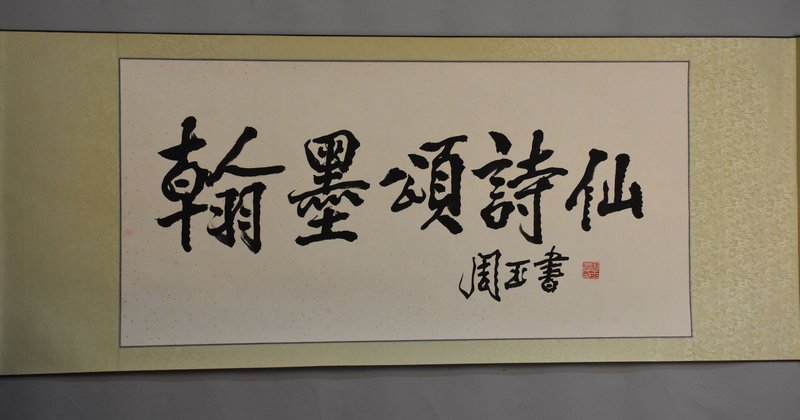 翰墨頌詩仙
周玉書